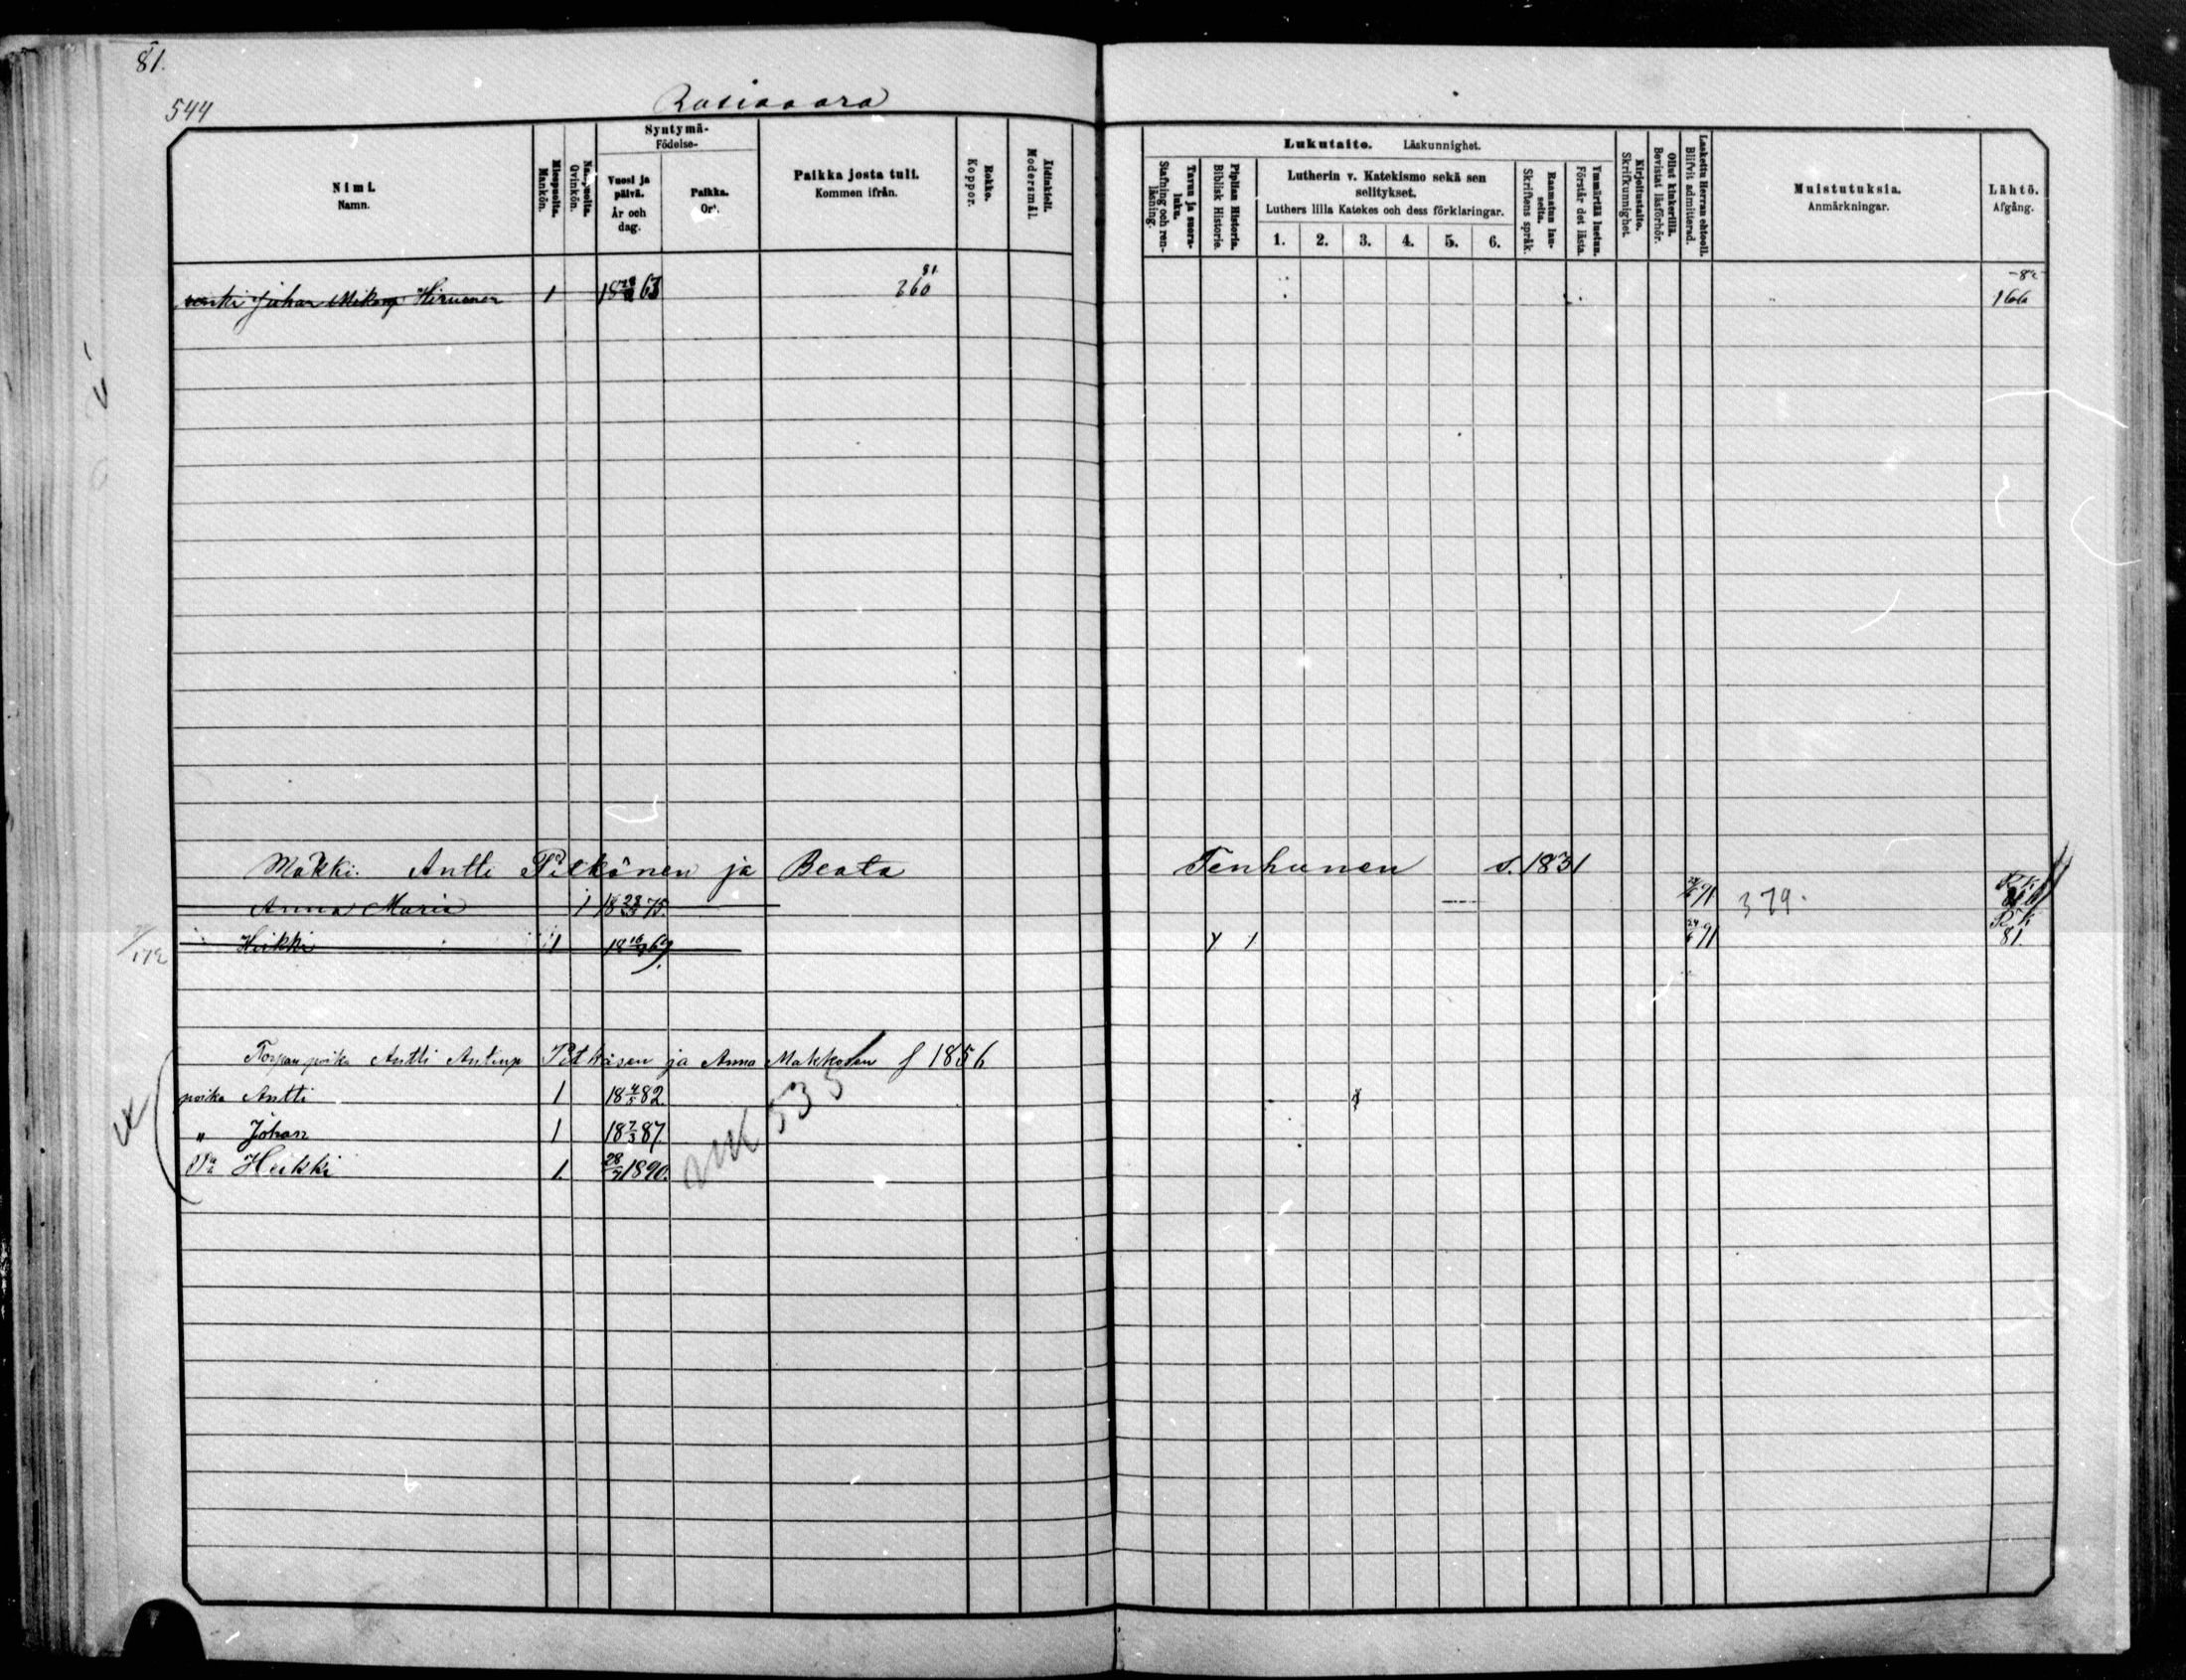 81.
544
Nimi.
Namn.
Miespuolta.
Mankön.
Naispuolta.
Qvinkön.
Syntymä-
Födelse-
Vuosi ja päivä.
År och dag.
Paikka.
Ort.
Paikka josta tuli.
Kommen ifrån.
Rokko.
Koppor.
Äidinkieli.
Modersmål.
Tavuu ja suora-luku.
Stafning och ren-läsning.
Piplian Historia.
Biblisk Historie.
Lukutaito. Läskunnighet.
Lutherin v. Katekismo sekä sen selitykset.
Luthers lilla Katekes och dess förklaringar.
1. 2. 3. 4. 5. 6.
Raamatun lau-seita.
Skriftens språk.
Ymmärtää luetun.
Förstår det lästa.
Kirjoitustaito.
Skrifkunnighet.
Ollut kinkerillä.
Bevistat läsförhör.
Laskettu Herran ehtooll.
Blifvit admitterad.
Muistutuksia.
Anmärkningar.
Lähtö.
Afgång.
renki Juhan Mikonp Hirvonen 1 63 81 260 166
Mäkki. Antti Pitkänen ja Beata Tenhunen s. 1831
Anna Maria 1 18 28 75. 91 379.
Heikki 1 69 1 24/6 91 81.
Torpan poika Antti Antinp Pitkäsen ja Anna Makkosen f 1856
poika Antti 1 18 4/5 82.
" Johan 1 18 7/3 87.
Heikki 1. 28 1890.
535